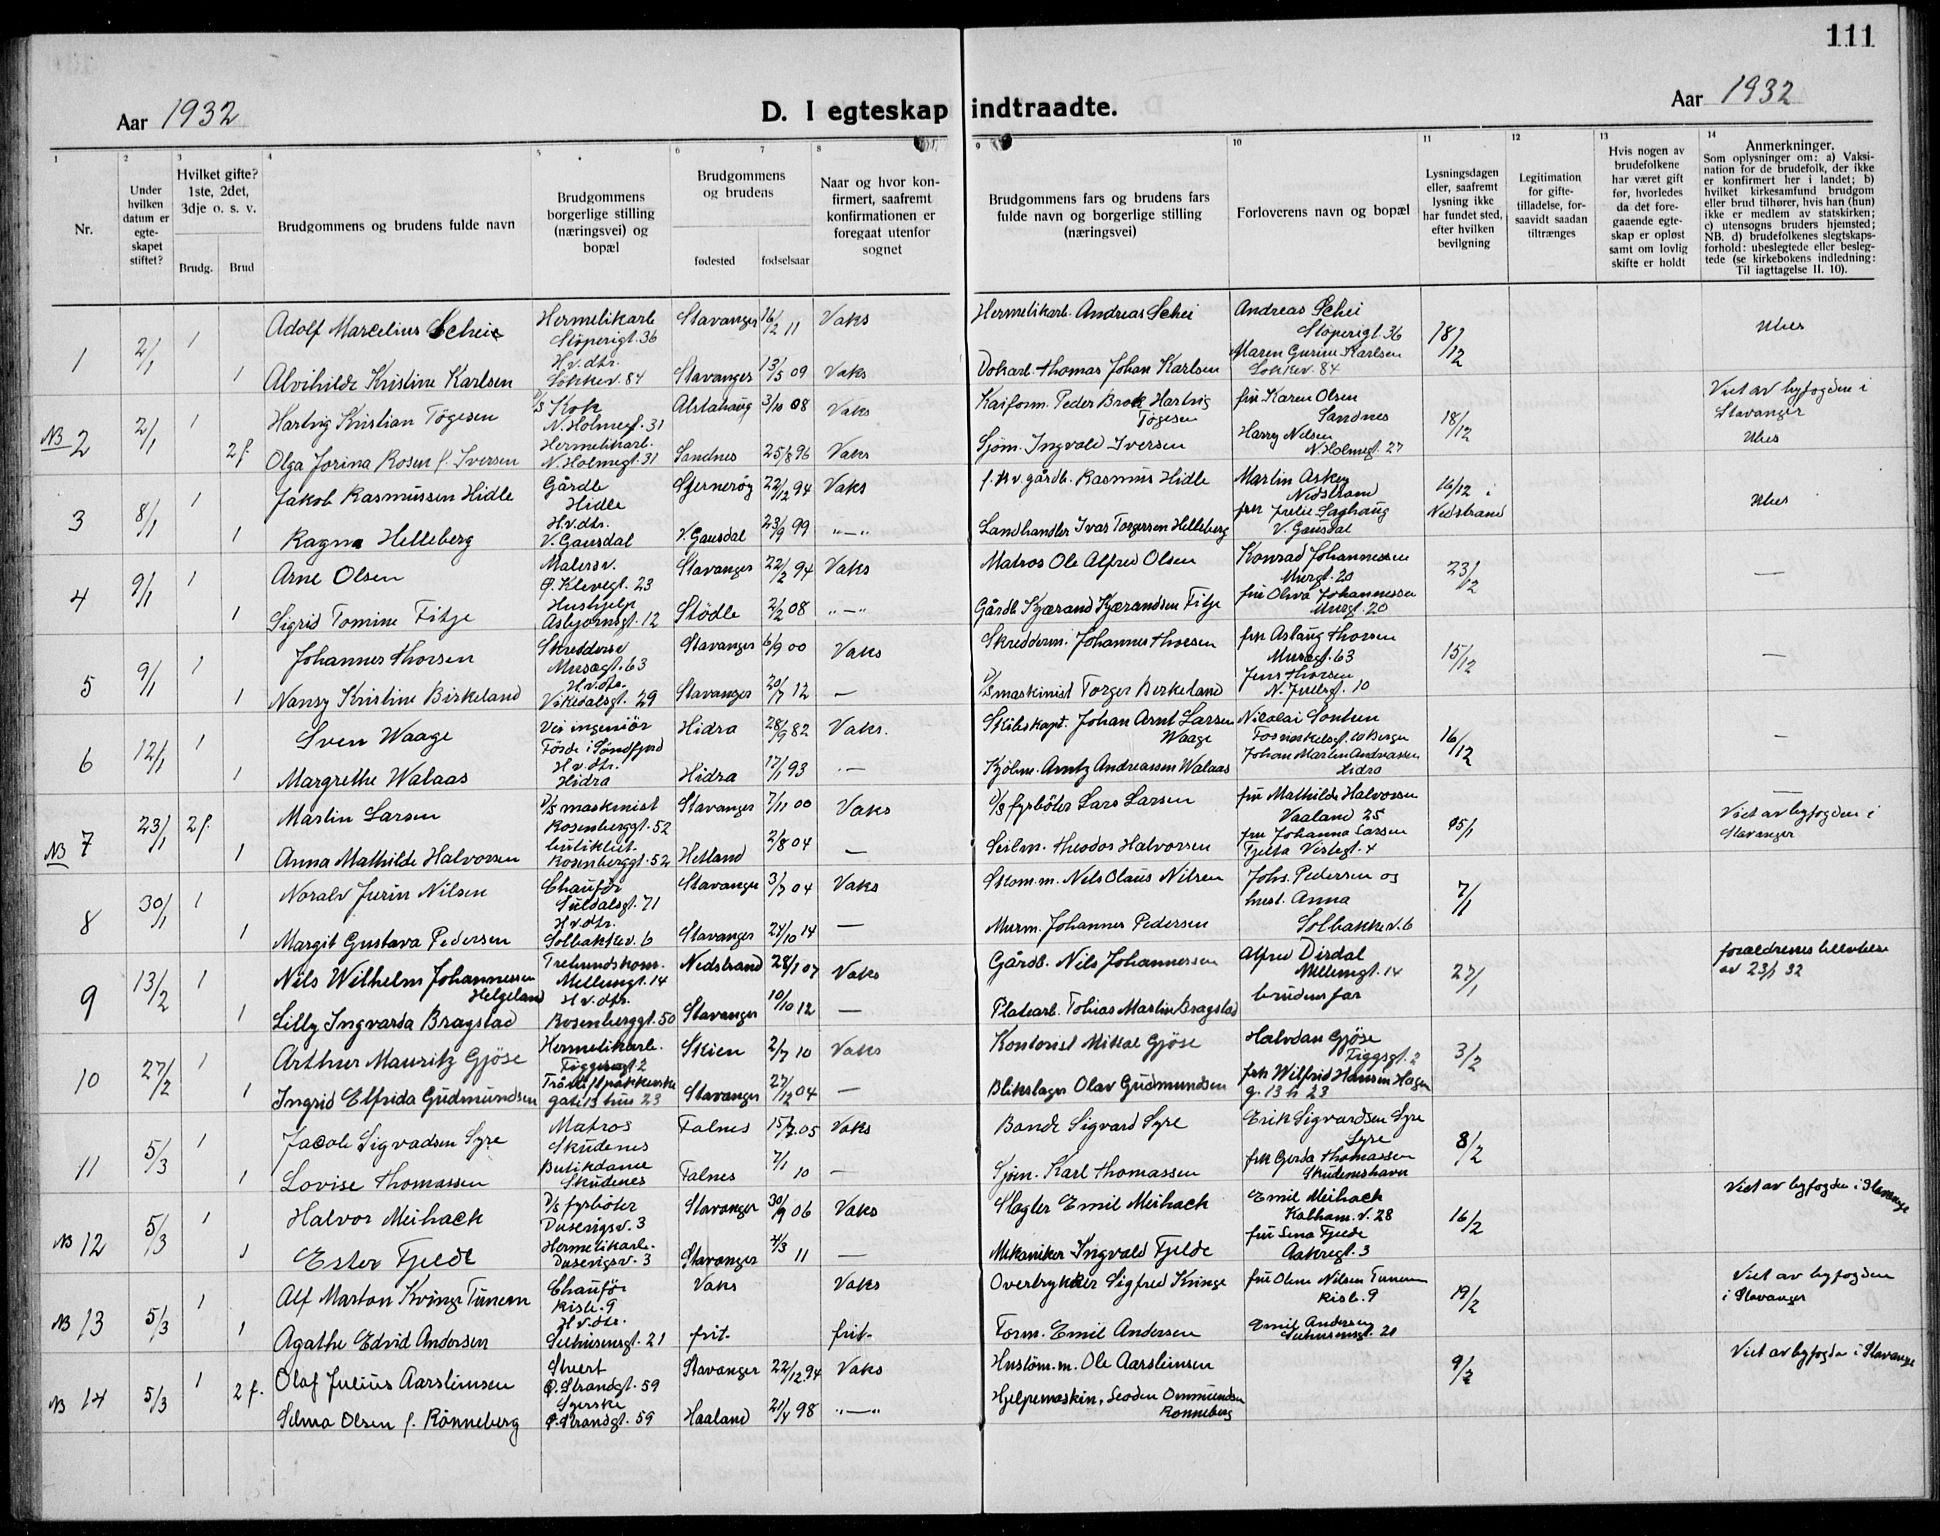 111
Aar 1932
D. I egteskap indtraadte.
Aar 1932
1
Nr.
2
Under hvilken datum er egte-skapet stiftet?
3
Hvilket gifte? 1ste, 2det, 3dje o. s. v.
Brudg.
Brud
4
Brudgommens og brudens fulde navn
5
Brudgommens borgerlige stilling (næringsvei) og bopæl
6
7
Brudgommens og brudens
fødested
fødselsaar
8
Naar og hvor kon-firmert, saafremt konfirmationen er foregaat utenfor sognet
9
Brudgommens fars og brudens fars fulde navn og borgerlige stilling (næringsvei)
10
Forloverens navn og bopæl
11
Lysningsdagen eller, saafremt lysning ikke har fundet sted, efter hvilken bevilgning
12
Legitimation for gifte-tilladelse, for-saavidt saadan tiltrænges
13
Hvis nogen av brudefolkene har været gift før, hvorledes da det fore-gaaende egte-skap er opløst samt om lovlig skifte er holdt
14
Anmerkninger.
Som oplysninger om: a) Vaksi-nation for de brudefolk, der ikke er konfirmert her i landet; b) hvilket kirkesamfund brudgom eller brud tilhører, hvis han (hun) ikke er medlem av statskirken; c) utensogns bruders hjemsted; NB. d) brudefolkenes slegtskaps-forhold: ubeslegtede eller besleg-tede (se kirkebokens indledning: Til iagttagelse II. 10).
1
2/1
1
Adolf Marcelius Scheie
Hermetikarb
Støperigt. 36
Stavanger
16/12 11
Vaks
Hermetikarb. Andreas Schei
Andreas Schei
Støperigt. 36
18/12
Ubes
1
Alvihilde Kristine Karlsen
H.v.dtr.
Løkkev. 84
Stavanger
13/5 09
Vaks
Dokarb. Thomas Johan Karlsen
Maren Gurine Karlsen
Løkkev. 84
NB 2
2/1
1
Hartvig Kristian Tøgesen
D/S Kok
N. Holmegt. 31
Alstahaug
3/10 08
Vaks
Kaiform. Peder Brok Hartvig Tøgesen
fru Karen Olsen
Sandnes
18/12
Viet av byfogden i Stavanger
Ubes
2 f.
Olga Jorina Rosen f. Iversen
Hermetikarb.
N. Holmegt. 31
Sandnes
25/8 96
Vaks
Sjøm. Ingvald Iversen
Harry Nilsen
N. Holmegt. 27
3
8/1
1
Jakob Rasmussen Hidle
Gårdb
Hidle
Sjernerøy
22/12 94
Vaks
f. k v. gårdb. Rasmus Hidle
Martin Askey
Nedstrand
16/12 i Nedstrand
Ubes
1
Ragna Helleberg
H.v.dtr.
V. Gausdal
V. Gausdal
23/9 99
"—"
Landhandler Ivar Torgersen Helleberg
V. Gausdal
4
9/1
1
Arne Olsen
Malersv.
Ø. Klevegt. 23
Stavanger
22/2 94
Vaks
Matros Ole Alfred Olsen
Konrad Johannessen
Murgt. 20
23/12
—
1
Sigrid Tomine Fitje
Hushjelp
Asbjørnsgt. 12
Stødle
2/2 08
"—"
Gårdb Kjærand Kjærandsen Fitje
fru Oliva Johannessen
Murgt. 20
5
9/1
1
Johannes Thorsen
Skreddersv
Musegt. 63
Stavanger
6/9 00
Vaks
Skredderm. Johannes Thorsen
frk Aslaug Thorsen
Musegt. 63
15/12
—
1
Nansy Kristine Birkeland
H.v.dtr.
Vikedalsgt. 29
Stavanger
20/7 12
—
D/S maskinist Torger Birkeland
Jens Thorsen
10
6
12/1
1
Sven Waage
Vei ingeniør
Førde i Søndfjord
Hidra
28/9 82
Vaks.
Skibskapt. Johan Arnt Larsen Waage
Nicolai
Bergen
16/12
—
1
Margrethe Walaas
H.v.dtr.
Hidra
Hidra
17/1 93
—
Kjøbm. Arntz Andreassen Walaas
Johan Martin Andreassen
Hidra
NB 7
23/1
2 f.
Martin Larsen
D/S maskinist
Rosenberggt. 52
Stavanger
7/11 00
Vaks
D/S fyrbøter Lars Larsen
fru Mathilde Halvorsen
Vaaland 25
15/1
—
Viet av byfogden i Stavanger
1
Anna Mathilde Halvorsen
Rosenberggt. 52
Hetland
2/8 04
—
Seilm. Theodor Halvorsen
fru Johanna Larsen
Tjelta Vistegt. 4
8
30/1
1
Noralv Jurin Nilsen
Chauffør
Suldalsgt. 71
Stavanger
3/7 04
Vaks
Skom. m. Nils Olaus Nilsen
Johs. Pedersen og
hust. Anna
7/1
1
Margit Gustava Pedersen
H.v.dtr.
Solbakkev. 6
Stavanger
24/10 14
—
Murm. Johannes Pedersen
Solbakkev. 6
9
13/2
1
Nils Wilhelm Johannessen Helgeland
Mellemgt. 14
Nedstrand
28/1 07
Vaks
Gårdb. Nils Johannessen
Alfred Dirdal
Mellemgt. 14
27/1
foraldrenes tillatelse av 23/1 32
1
Lilly Ingvarda Bragstad
H.v.dtr.
Rosenberggt. 50
Stavanger
10/10 12
—
Platearb. Tobias Martin Bragstad
brudens far
10
27/2
1
Arthur Mauritz Gjøse
Hermetikarb.
Figgsgt 2
Skien
2/7 10
Vaks
Kontorist Mikal Gjøse
Halvdan Gjøse
Figgsgt. 2
3/2
1
Ingrid Elfrida Gudmundsen
gate 13 hus 23
Stavanger
27/12 04
—
Blikslager Olav Gudmundsen
frk Wilfrid Hansen Hagen
g. 13 h 23
11
5/3
1
Jacob Sigvadsen Syre
Matros
Skudenes
Falnes
15/7 05
Vaks
Bonde Sigvard Syre
Erik Sigvardsen Syre
Syre
8/2
1
Lovise Thomassen
Butikdame
Skudenes
Falnes
7/1 10
—
Sjøm. Karl Thomassen
frk Gerda Thomassen
Skudeneshavn
NB 12
5/3
1
Halvor Meihack
D/S fyrbøter
Dusevigsv. 3
Stavanger
30/9 06
Vaks
Slagter Emil Meihack
Emil Meihack
Kalham. v. 28
16/2
Viet av byfogden i Stavanger
1
Ester Fjelde
Hermetikarb.
Dusevigsv. 3
Stavanger
4/3 11
—
Mekaniker Ingvald Fjelde
fru Lena Fjelde
Aakregt. 3
NB 13
5/3
1
Alf Marton Kvinge Tunem
Chauffør
Risb. 9
Vaks
Vaks
Overtrykker Sigfred Kvinge
fru Oline Nilsen Tunem
Risb. 9
19/2
Viet av byfogden i Stavanger
1
Agathe Edvid Andersen
H.v.dtr.
Sehusensgt. 21
frit-
frit-
Form. Emil Andersen
Emil Andersen
Sehusensgt. 20
NB 14
5/3
1
Olaf Julius Aarstimsen
Stuert
Ø. Strandgt. 59
Stavanger
22/12 94
Vaks
Hustøm. m. Ole Aarslimsen
9/2
Viet av byfogden i Stavanger
2 f.
Selma Olsen f. Rønneberg
Syerske
Ø. Strandgt. 59
Haaland
21/4 98
"—"
Hjelpemaskin. Seoden Ommundsen Rønneberg